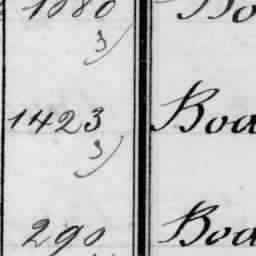 1080
3)
1423 Boa
3)
290 Boa